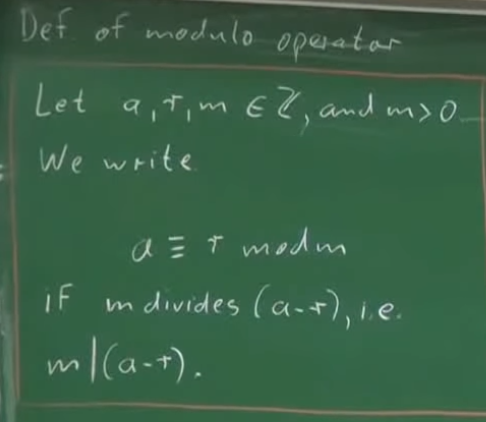 Def. of modulo operator
Let a, r, m ∈ ℤ, and m > 0
We write
a ≡ r mod m
if m divides (a-r), i.e.
m | (a-r).